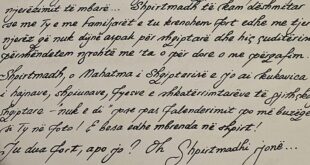 njerëzimit të mbarë... Shpirtmadh të kam dëshmitar
se me Ty e me Familjarët e tu krenohem fort edhe me tjer
njerëz që nuk dijnë aspak për shqiptarë dhe hiç çuditërin
përshëndetem ngrohtë me ta o për dore o me përqafim.
Shpirtmadh, o Mahatma i Shqiptarisë e jo ai kukavica
i hajnave, shpiunave, fyesve e shkatërrimtarëve të gjithçkaje
shqiptare - nuk e di pse pas falenderimit po më buzëqesh
si Ty në foto! E besa edhe mbrenda në shpirt!
Tu dua fort, apo jo? Oh Shpirtmadhi jonë...